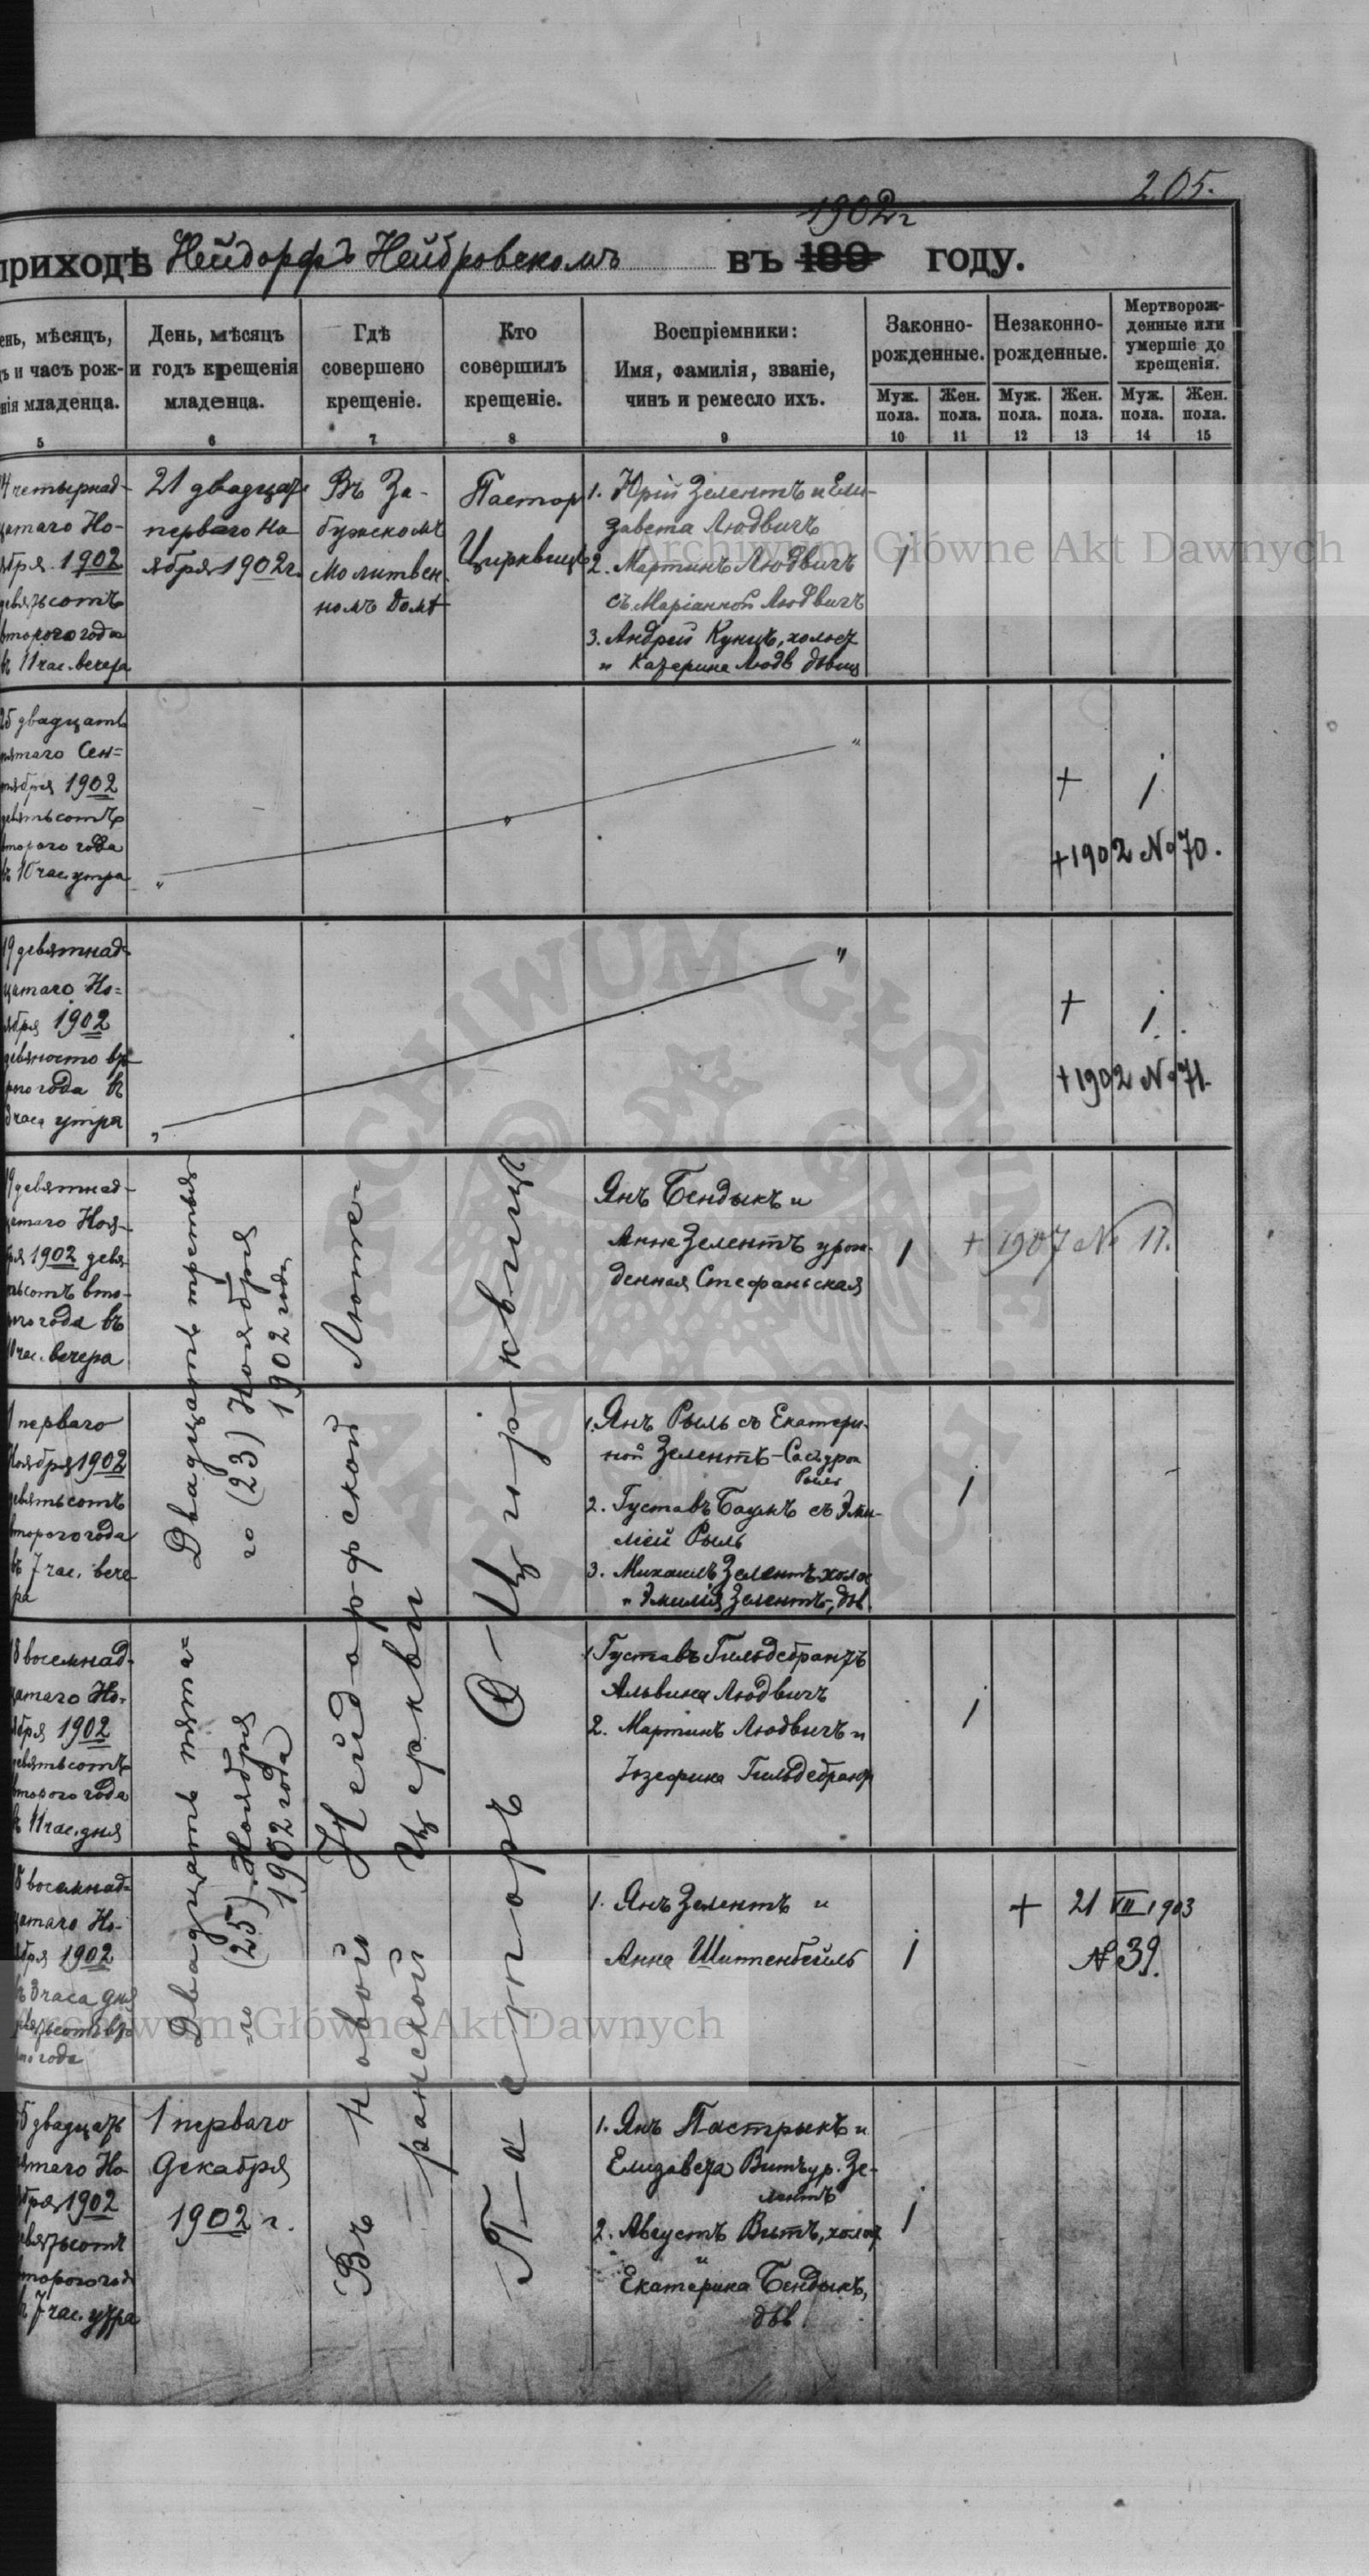 205.
1902 г
приходѣ Нейдорфъ Нейбровскомъ въ 189 году.
ень, мѣсяцъ,
ъ и часъ рож-
нія младенца.
5
День, мѣсяцъ
и годъ крещенія
младенца.
6
Гдѣ
совершено
крещеніе.
7
Кто
совершилъ
крещеніе.
8
Воспріемники:
Имя, фамилія, званіе,
чинъ и ремесло ихъ.
9
Законно-
рожденные.
Муж. пола.
10
Жен. пола.
11
Незаконно-
рожденные.
Муж. пола.
12
Жен. пола.
13
Мертворож-
денные или
умершіе до
крещенія.
Муж. пола.
14
Жен. пола.
15
14 четырнад-
цатаго Но-
ября 1902
девятьсотъ
второго года
въ 11 час. вечера
21 двадцать
перваго Но
ября 1902 г.
Въ За-
бужскомъ
молитвен.
номъ домѣ
Пастор
Цирквицъ
1. Юрій Зелентъ и Ели-
завета Людвигъ
2. Мартинъ Людвигъ
съ Маріанной Людвигъ
3. Андрей Кунцъ, холост
и Катерина Людв дѣвиц
1
25 двадцать
пятаго Сен=
тября 1902
девятьсотъ
второго года
въ 10 час. утра
+ 1
+1902 №70.
19 девятнад-
цатаго Но=
ября 1902
девяносто вт
рого года въ
часа утра
+ 1.
+1902 №71.
19 девятнад-
цатаго Ноя-
бря 1902 девя-
тьсотъ вто-
рого года въ
11 час. вечера
Двадцать третья-
го (23) Ноября
1902 года
Въ новой Нейдорфской Люте-
ранской Церкви
Пасторъ Ф- Цирквицъ
Янъ Бендыкъ и
Анна Зелентъ урож-
денная Стефаньская
1
+ 1907 № 11.
1 перваго
Ноября 1902
девятьсотъ
второго года
въ 7 час. вече
ра
1. Янъ Рыль съ Екатери-
ной Зелентъ-Састурон
Рыль
2. Густавъ Баумъ съ Эми-
ліей Рыль
3. Михаилъ Зелентъ холос
и Эмилія Зелентъ, дѣв.
1
18 восемнад-
цатаго Но-
ября 1902
девятьсотъ
второго года
въ 11 час. дня
Двадцать пята=
го (25) Ноября
1902 года
1 Густавъ Гильдебрантъ
Альвина Людвигъ
2. Мартинъ Людвигъ и
Юзефина Гильдебранд
1
18 восемнад-
цатаго Но-
ября 1902
въ 3 часа дня
девятьсотъ вто
рого года
1. Янъ Зелентъ и
Анна Шиттенбейль
1
+ 21 VII 1903
№ 39.
25 двадцать
пятаго Но-
ября 1902
девятьсотъ
второго года
въ 7 час. утра
1 перваго
Декабря
1902 г.
1. Янъ Пастрыкъ и
Елизавета Витъ ур. Зе-
лентъ
2. Августъ Витъ, холост
и
Екатерина Бендыкъ,
дѣв.
1
Archiwum Główne Akt Dawnych
ARCHIWUM GŁÓWNE AKT DAWNYCH
Archiwum Główne Akt Dawnych